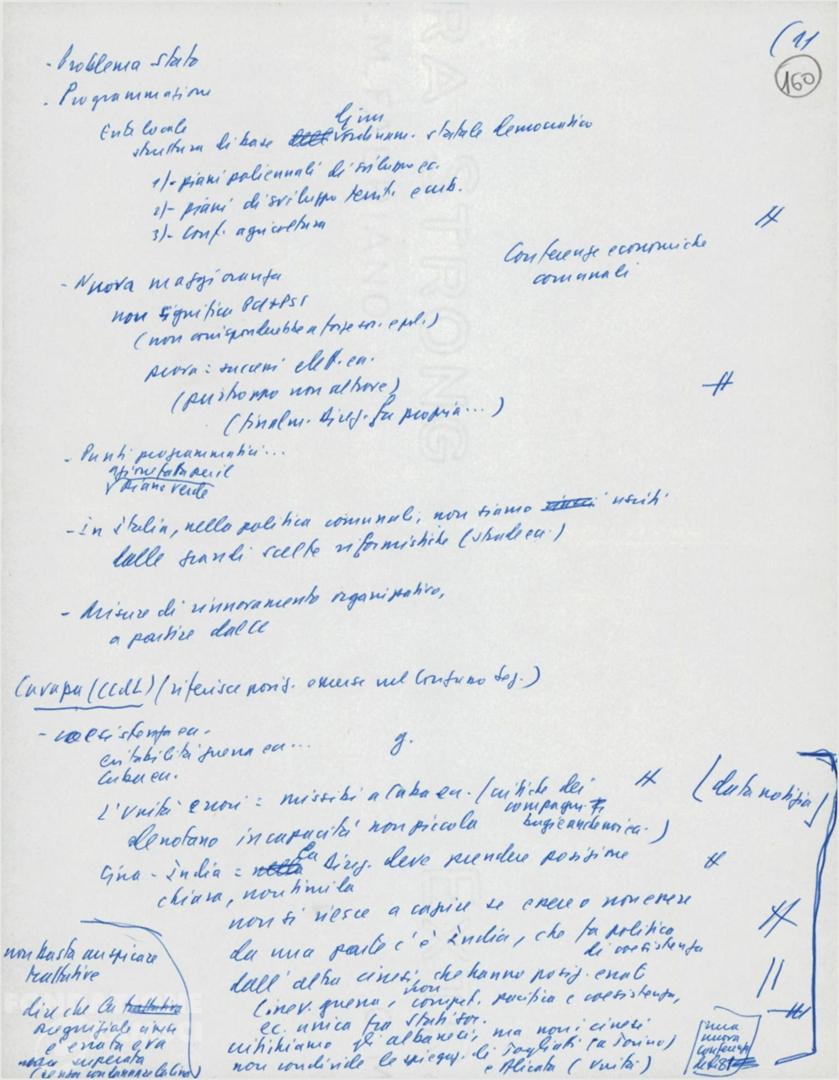 (11
160
- Problema stato
- Programmazione
Ente locale
struttura di base di un ordinam. statale democratico
1)- piani poliennali di sviluppo ec.
2)- piani di sviluppo territ. e urb.
3)- conf. agricoltura
Conferenze economiche
comunali
- Nuova maggioranza
non significa PCI+PSI
(non corrisponderebbe a forze soc. e pol.)
prova: successi elett. ec.
(purtroppo non altrove)
(finalm. Direz. fa propria...)
- Punti programmatici...
piano verde
- In Italia, nella politica comunali, non siamo usciti
dalle grandi scelte riformistiche (strade ec.)
- Misure di rinnovamento organizzativo,
a partire dal CC
Cavapu (CCdL) (riferisce posiz. emerse nel Congresso Sez.)
- coesistenza ec.
evitabilità guerra ec...
Cuba ec.
g.
L'Unità errori = missili a Cuba ec. (critiche dei
compagni
denotano incapacità non piccola
(data notizia)
Cina-India = la Direz. deve prendere posizione
chiara, non timida
non si riesce a capire se errore o non errore
da una parte c'è India, che fa politica
di coesistenza
dall'altra cinesi, che hanno posiz. errate
(inev. guerra, non compet. pacifica e coesistenza,
ec. unica fra stati soc.
critichiamo gli albanesi, ma non i cinesi
non condivide le spiegaz. di Togliatti (a Torino)
e Alicata (Unità)
non basta auspicare
trattative
dire che la
pregiudiziale cinese
è errata e va
superata
una
nuova
conferenza